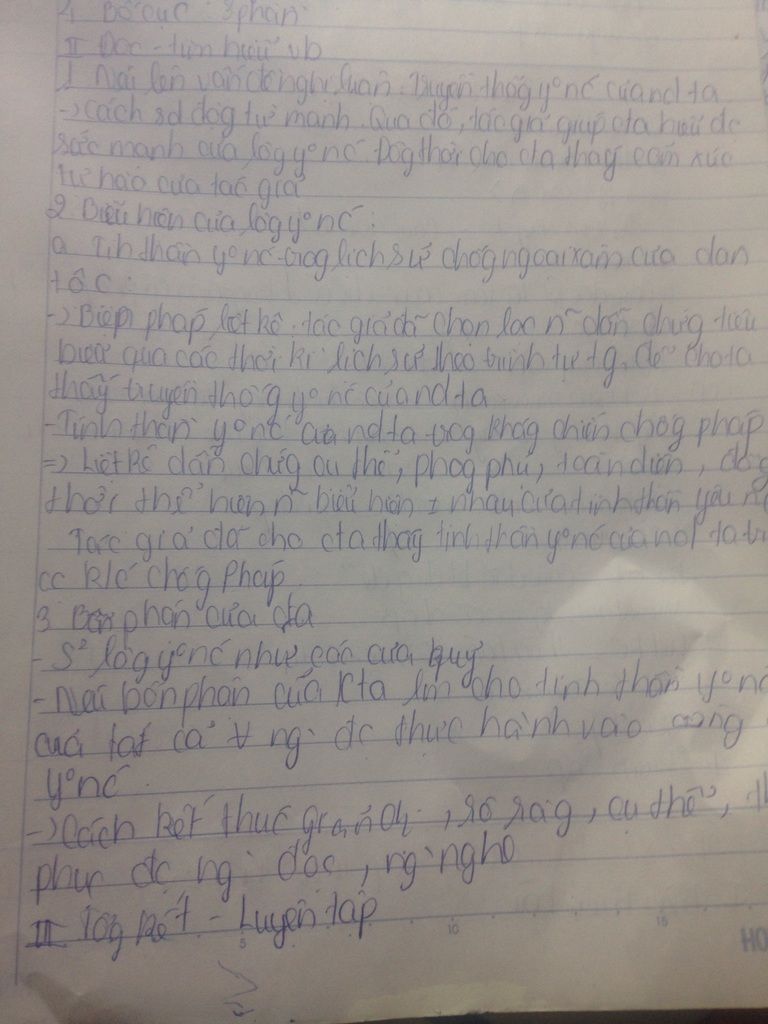 4 Bố cục 3 phần
II Đọc - tìm hiểu vb
1 Nêu lên vấn đề nghị luận. Truyền thốg yºnc' của nd ta
-> Cách sd độg từ mạnh. Qua đó, tác giả giúp cta hiểu đc
sức mạnh của lòg yºnc'. Đồg thời cho cta thấy cảm xúc
tự hào của tác giả
2 Biểu hiện của lòg yºnc':
a. Tinh thần yºnc' trog lịch sử chốg ngoại xâm của dân
tộc:
-> Biện pháp liệt kê. tác giả đã chọn lọc n~ dẫn chứg tiêu
biểu qua các thời kì lịch sử theo trình tự tg. để cho ta
thấy truyền thốg yºnc' của nd ta
- Tinh thần yºnc' của nd ta trog khág chiến chốg pháp
=> Liệt kê dẫn chứg cụ thể, phog phú, toàn diện, đồg
thời thể hiện n~ biểu hiện ≠ nhau của tinh thần yêu
Tác giả đã cho cta thấy tinh thần yºnc' của nd ta
cc k/c chốg Pháp
3 Bổn phận của cta
- S² lòg yºnc' như các của quý
- Nêu bổn phận của cta làm cho tinh thần yºnc'
của tất cả ∀ ng` đc thực hành vào công
yºnc'
-> Cách kết thúc , rõ ràg, cụ thể,
phục đc ng` đọc, ng` nghe
III Tổg kết - Luyện tập
5 10 15
HO